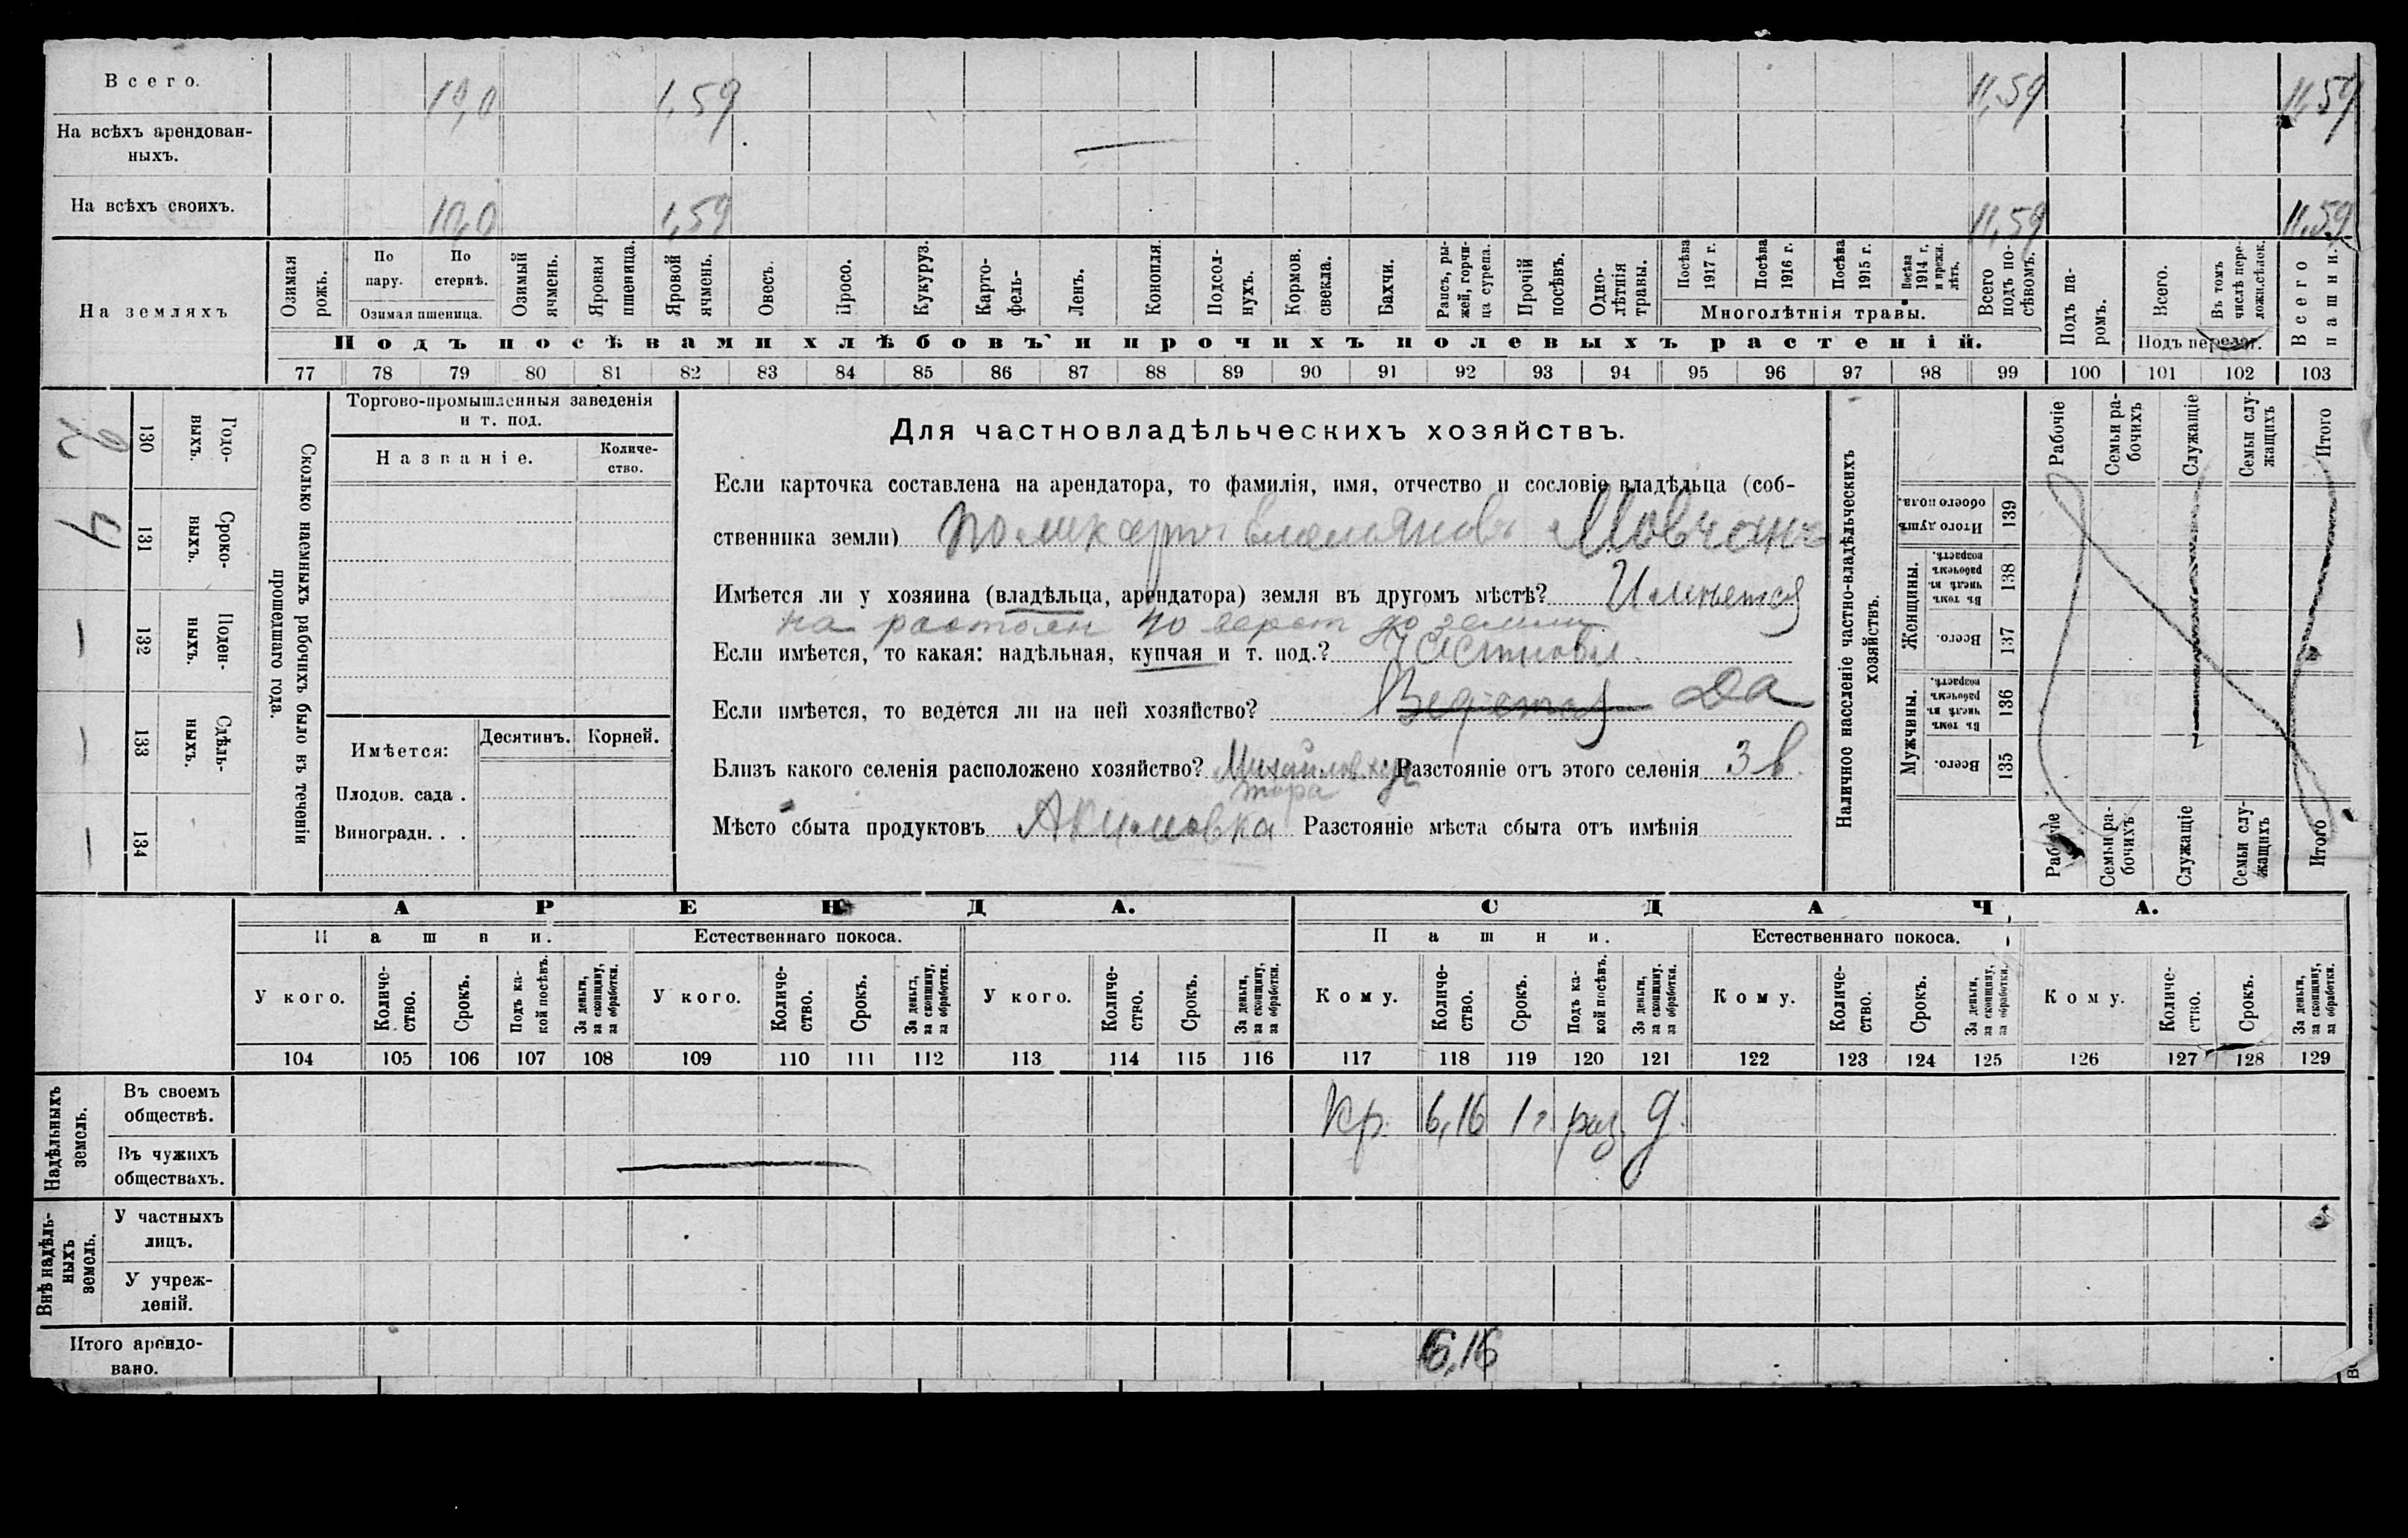 Всего. 10,0 1,59 11,59 11,59
На всѣхъ арендован-
ныхъ. —
На всѣхъ своихъ. 10,0 1,59 11,59 11.59
На земляхъ
Озимая рожь.
По пару.
По стернѣ.
Озимая пшеница.
Озимый ячмень.
Яровая пшеница.
Яровой ячмень.
Овесъ.
Просо.
Кукуруз.
Карто-
фель-
Ленъ.
Конопля.
Подсол-
нухъ.
Кормов. свекла.
Бахчи.
Рапсъ, ры-
жей, горчи-
ца сурепа.
Прочій посѣвъ.
Одно-
лѣтнія травы.
Посѣва 1917 г.
Посѣва 1916 г.
Посѣва 1915 г.
Посѣва 1914 г. и прежн. лѣтъ.
Многолѣтнія травы.
Всего подъ по-
сѣвомъ.
Подъ посѣвами хлѣбовъ и прочихъ полевыхъ растеній.
Подъ па-
ромъ.
Всего.
Въ томъ числѣ пере-
ложн.сѣнок.
Подъ перелог.
Всего пашни.
77 78 79 80 81 82 83 84 85 86 87 88 89 90 91 92 93 94 95 96 97 98 99 100 101 102 103
Сколько наемныхъ рабочихъ было въ теченіи
прошедшаго года.
Годо-
выхъ.
130
2
Сроко-
ныхъ.
131
4
Поден-
ныхъ.
132
—
Сдѣль-
ныхъ.
133
—
134
—
Торгово-промышленныя заведенія
и т. под.
Названіе.
Количе-
ство.
Имѣется:
Десятинъ. Корней.
Плодов. сада .
Виноградн. . .
Для частновладѣльческихъ хозяйствъ.
Если карточка составлена на арендатора, то фамилія, имя, отчество и сословіе владѣльца (соб-
ственника земли) Мовчанъ
Имѣется ли у хозяина (владѣльца, арендатора) земля въ другомъ мѣстѣ? Имѣется
на растоян 40 верст до земли
Если имѣется, то какая: надѣльная, купчая и т. под.?
Если имѣется, то ведется ли на ней хозяйство? Ведется Да
Близъ какого селенія расположено хозяйство? Михайлов ху Разстояніе отъ этого селенія 3 в.
тора
Мѣсто сбыта продуктовъ Акимовка Разстояніе мѣста сбыта отъ имѣнія
Наличное населеніе частно-владѣльческихъ
хозяйствъ.
Рабочіе
Семьи ра-
бочихъ
Служащіе
Семьи слу-
жащихъ
Итого
Итого душъ
обоего пола.
139
Женщины.
Въ томъ числѣ въ рабочемъ возрастѣ.
138
Всего.
137
Мужчины.
Въ томъ числѣ въ рабочемъ возрастѣ.
136
Всего.
135
Рабочіе
Семьи ра-
бочихъ
Служащіе
Семьи слу-
жащихъ
Итого
АРЕНДА.
СДАЧА.
Пашни.
Естественнаго покоса.
Пашни.
Естественнаго покоса.
У кого.
Количе-
ство.
Срокъ.
Подъ ка-
кой посѣвъ.
За деньги,
за скопщину,
за обработки.
У кого.
Количе-
ство.
Срокъ.
За деньги,
за скопщину,
за обработки.
У кого.
Количе-
ство.
Срокъ.
За деньги,
за скопщину,
за обработки.
Кому.
Количе-
ство.
Срокъ.
Подъ ка-
кой посѣвъ.
За деньги,
за скопщину.
за обработки.
Кому.
Количе-
ство.
Срокъ.
За деньги,
за скопщину,
за обработки.
Кому.
Количе-
ство.
Срокъ.
За деньги,
за скопщину,
за обработки.
104 105 106 107 108 109 110 111 112 113 114 115 116 117 118 119 120 121 122 123 124 125 126 127 128 129
Надѣльныхъ
земель.
Въ своемъ
обществѣ.
Кр. 6,16 1 г. раз. д.
Въ чужихъ
обществахъ.
—
Внѣ надѣль-
ныхъ
земель.
У частныхъ
лицъ.
У учреж-
деній.
Итого арендо-
вано.
6,16